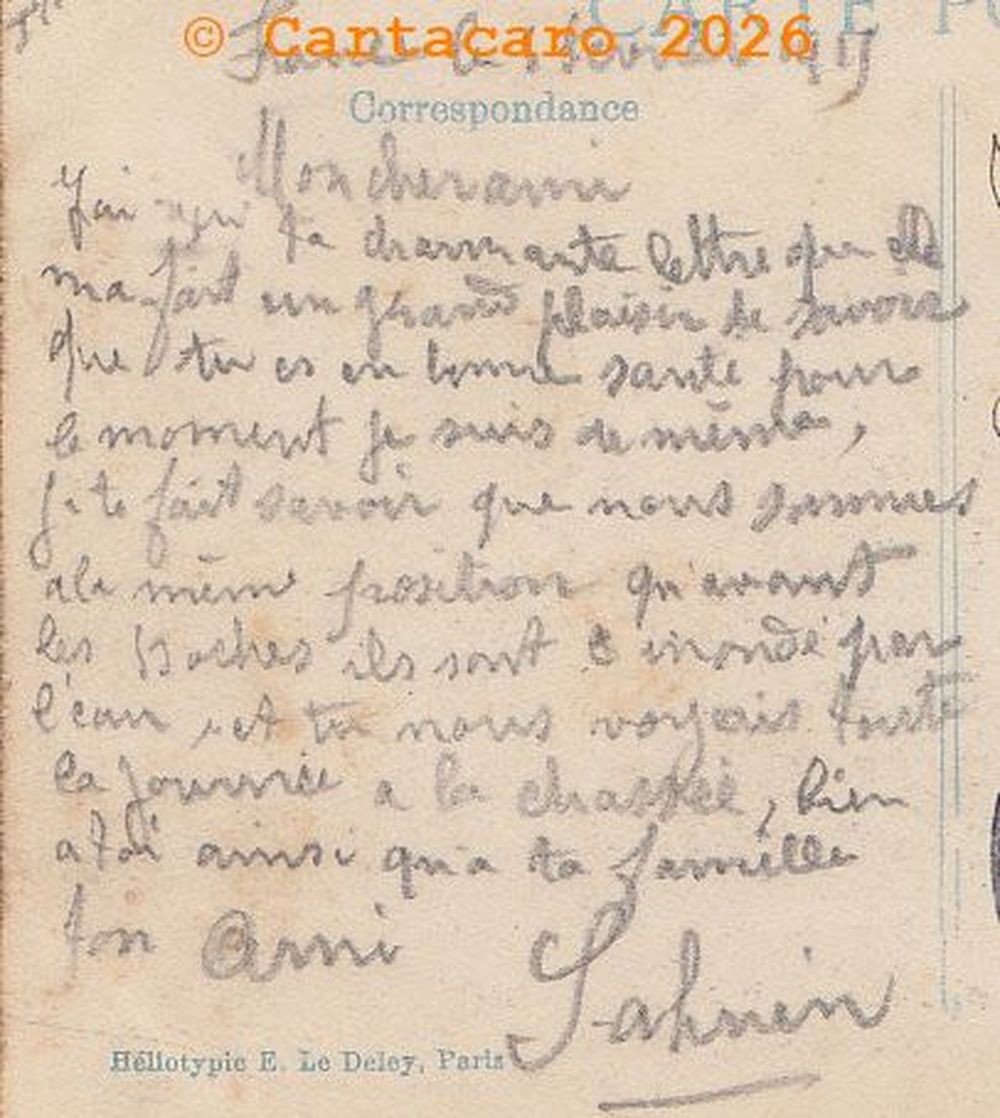 CARTE PO
© Cartacaro 2026
Correspondance
Mon cher ami
J'ai reçu ta charmante lettre que elle
ma fait un grand plaisir de savoir
que tu es en bonne santé pour
le moment je suis de même,
je te fait savoir que nous sommes
a la même position qu'avant
les Boches ils sont inondé par
l'eau, et tu nous voyais toute
la journée a la chasse, bien
a toi ainsi qu'a ta famille
Ton Ami
Héliotypie E. Le Deley, Paris